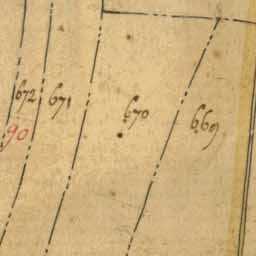 672
671
670
669
90